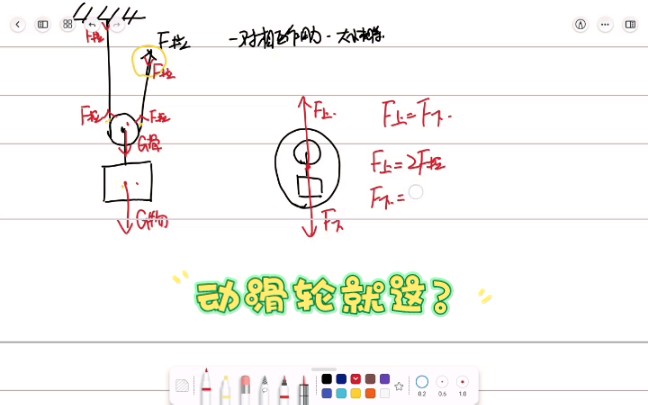 F拉
F拉
一对相互作用力·大小相等
F拉
F拉
F拉
G滑
G物
F上
F下
F上=F下
F上=2F拉
F下=
动滑轮就这?
0.2 0.6 1.0